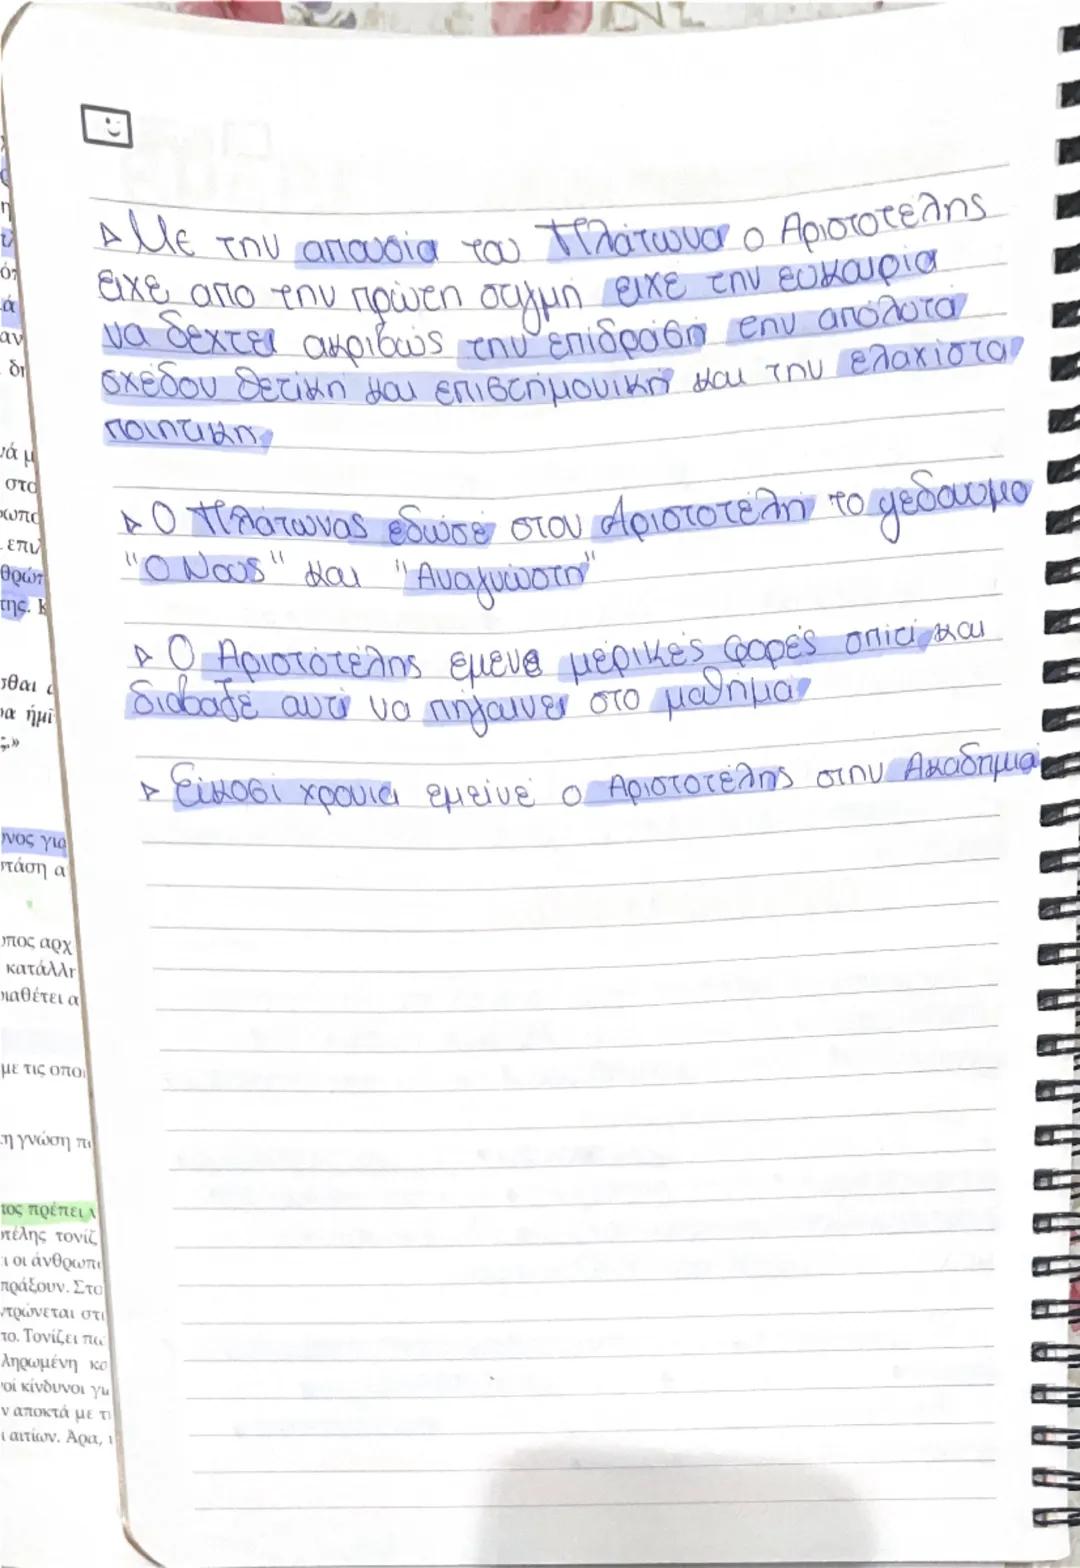 ▷ Με την απουσία του Πλάτωνα ο Αριστοτέλης
είχε απο την πρώτη σαγμή είχε την ευκαιρία
να δεχτεί ακριβώς την επίδραση την απόλυτα
σχέδον θετική και επιστημονική και την ελαχίστα
ποιητική.
▷ Ο Πλάτωνας έδωσε στον Αριστοτέλη το ψεδαυμο
"Ο Νους" και "Αναγνώστη"
▷ Ο Αριστότέλης εμενε μερικές φορές σπίτι και
διαβαζε αυτί να πήγαινει στο μαθημα
▷ Είκοσι χρονια εμεινε ο Αριστοτέλης στην Ακαδημια
νά μ
στο
επι
θρώπ
της. Κ
σθαι
ρα ἡμῖ
ς.»
νος για
στάση α
πος αρχ
κατάλλη
διαθέτει α
με τις οποι
τη γνώση π
τος πρέπει
τέλης τονίζ
ι οι άνθρωπ
πράξουν. Στο
ντρώνεται στ
το. Τονίζει πω
ληρωμένη κο
οί κίνδυνοι γι
ν αποκτά με τ
ι αιτίων. Άρα,